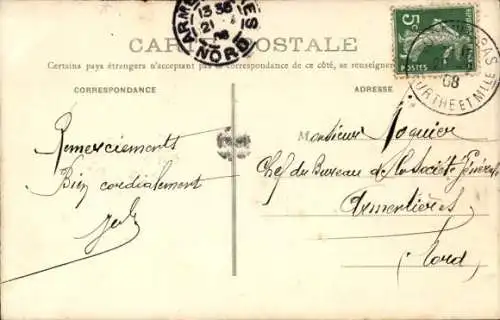 ARMENTIERES
13 35
21 - 4
08
NORD
CARTE POSTALE
5c
POSTES
08
MEURTHE ET MLLE
Certains pays étrangers n'acceptant pas la correspondance de ce côté, se renseigner
CORRESPONDANCE
ADRESSE
Remerciements
Bien cordialement
Monsieur Noguier
Chef du Bureau de la Société Générale
Armentières
(Nord)